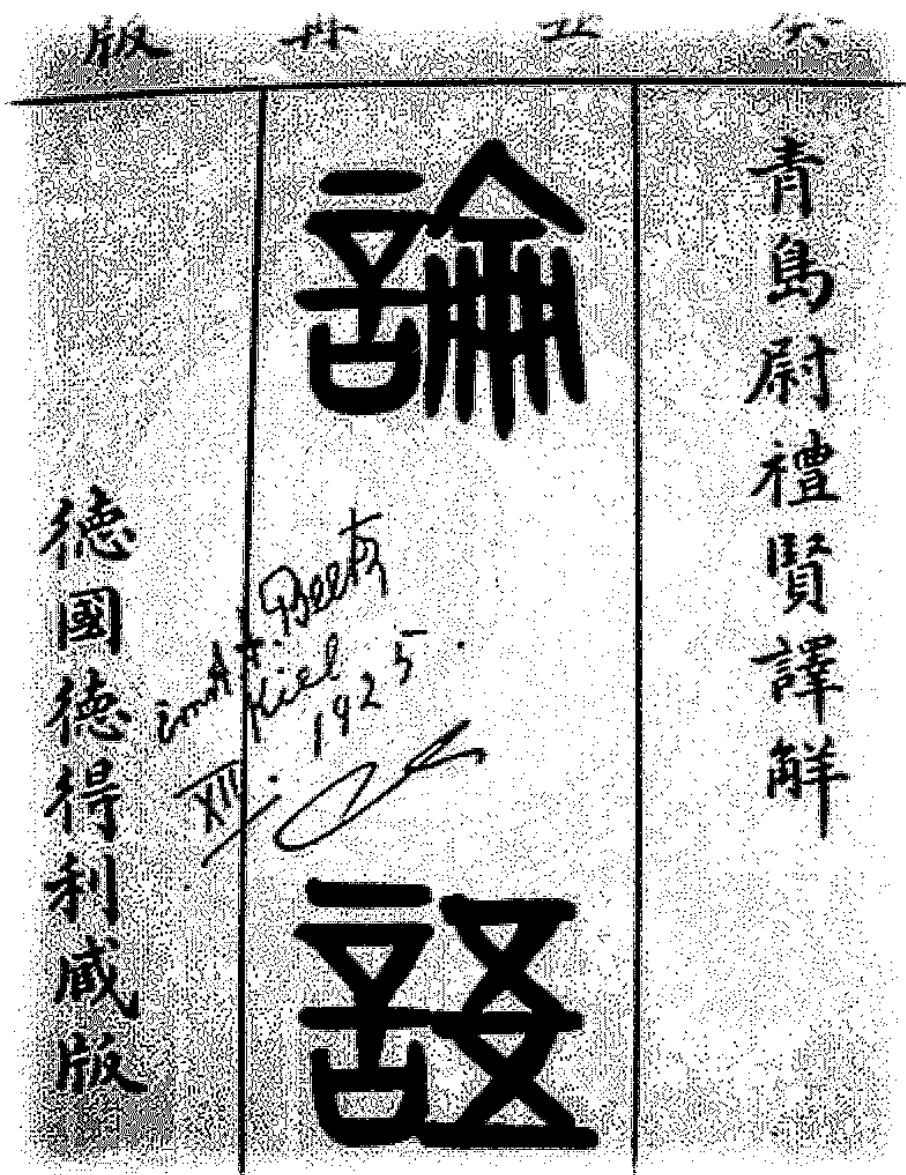 癸丑再版
青島尉禮賢譯解
論語
德國德得利藏版
Kiel
1925.
XII.